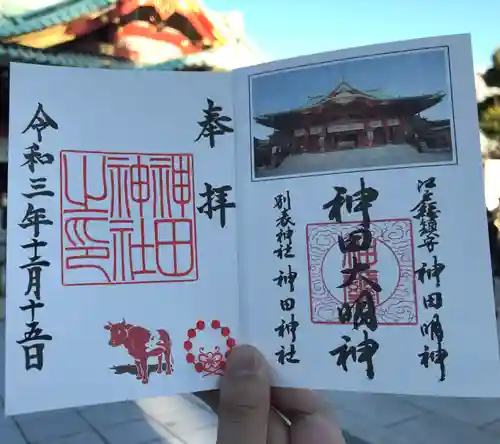 奉拝
神田
神社
之印
令和三年十二月十五日
江戸総鎮守 神田明神
神田大明神
別表神社 神田神社